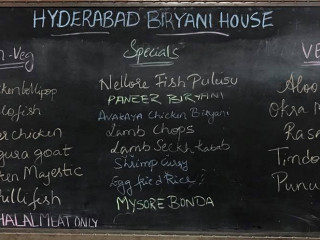 HYDERABAD BIRYANI HOUSE
n-Veg
Specials
VE
ckenlollipop
Nellore Fish Pulusu
Aloo
llofish
PANEER BIRYANI
Okra M
er chicken
Avakaya Chicken Biryani
Rasa
gura goat
Lamb Chops
Tindo
ken Majestic
Lamb Seekh Kabab
Punu
hilli fish
Shrimp curry
HALAL MEAT ONLY
Egg fried Rice
MYSORE BONDA